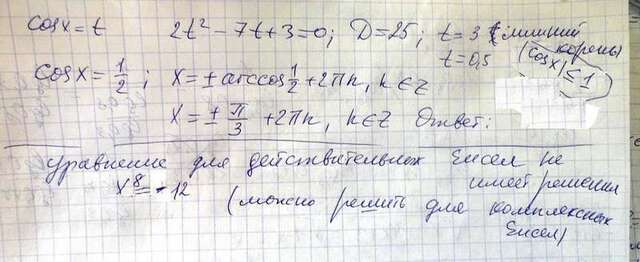 cosx = t 2t² - 7t + 3 = 0; D = 25; t = 3 лишний корень
t = 0,5 |cosx| ≤ 1
cosx = 1/2; x = ± arccos 1/2 + 2πn, n ∈ Z
x = ± π/3 + 2πn, n ∈ Z Ответ:
уравнение для действительных чисел не
имеет решения
x⁸ = -12
(можно решить для комплексных
чисел)